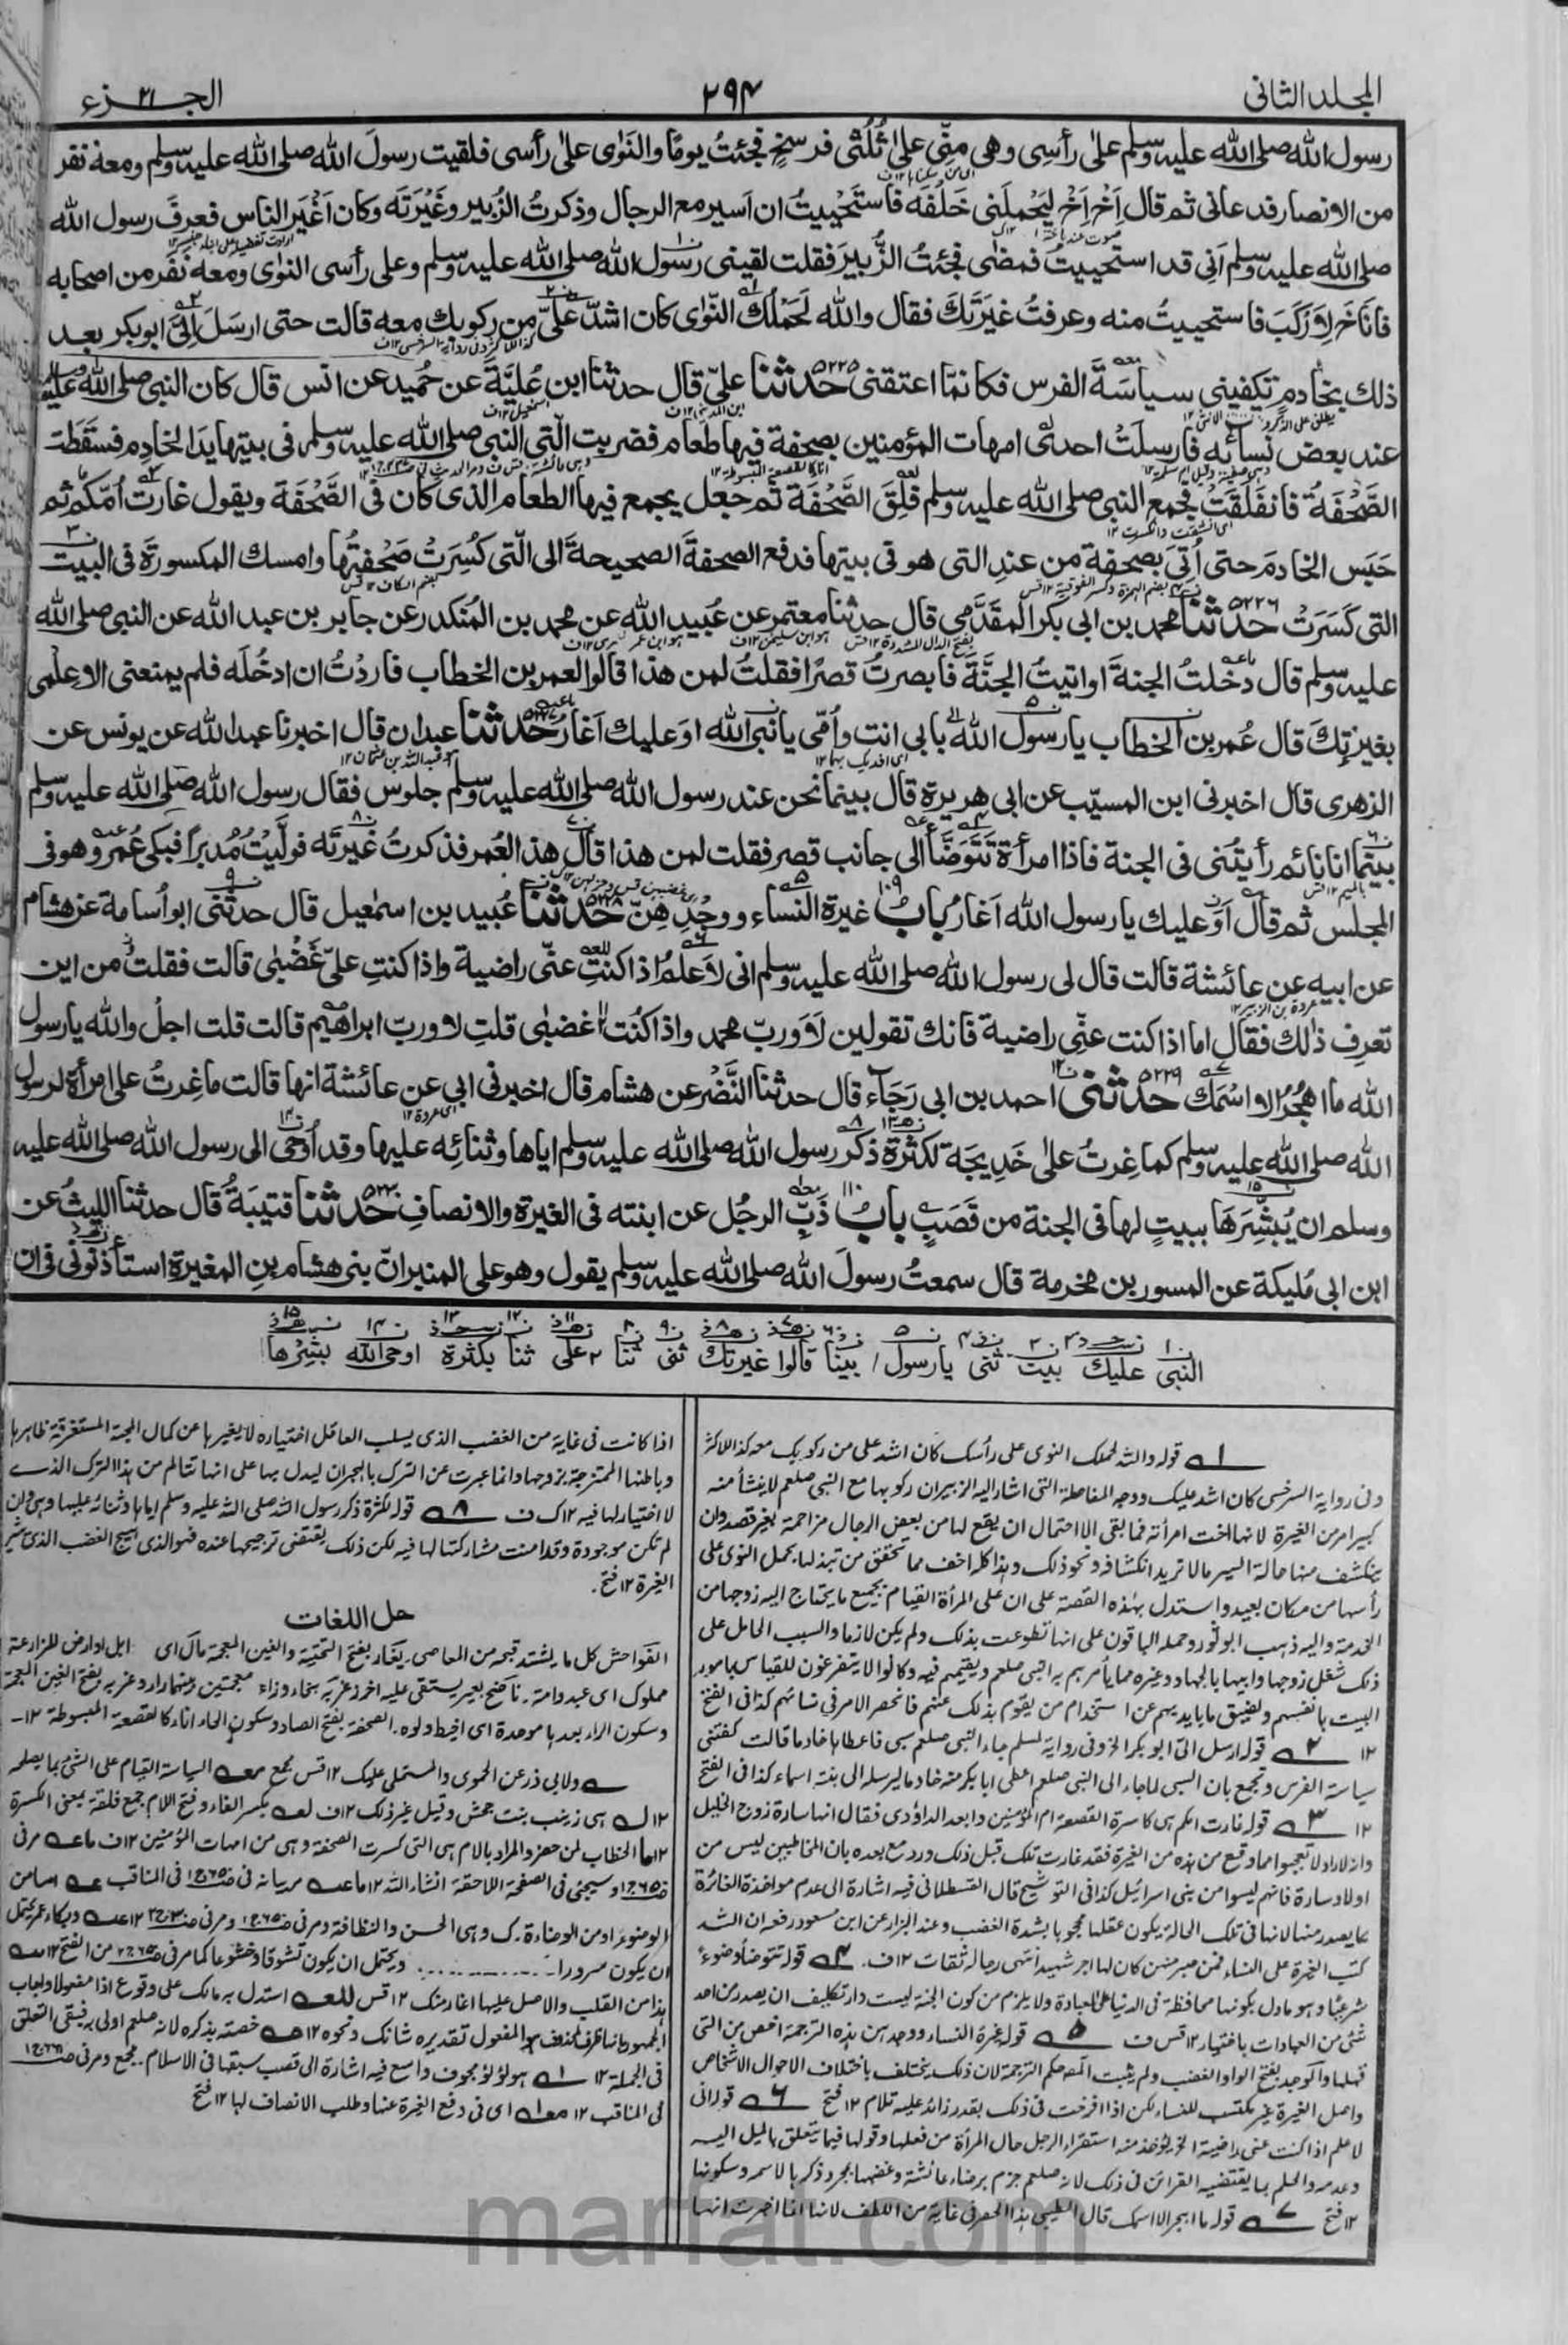 المجلد الثاني
٢٩٤
الجزء ٢١
رسول الله صلى الله عليه وسلم على رأسي وهي منّي على ثُلُثَي فرسخ فجئتُ يومًا والنوى على رأسي فلقيت رسول الله صلى الله عليه وسلم ومعه نفر
من الانصار فدعاني ثم قال اِخْ اِخْ ليحملني خَلْفَه فاستحييتُ ان اسير مع الرجال وذكرتُ الزُبير وغَيْرَتَه وكان اَغْيَرَ الناس فعرفَ رسول الله
صلى الله عليه وسلم اَني قد استحييتُ فمضى فجئتُ الزُّبيرَ فقلت لقيني رسول الله صلى الله عليه وسلم وعلى رأسي النوى ومعه نَفَر من اصحابه
فاناخ لِاَرْكَبَ فاستحييتُ منه وعرفتُ غيرَتَكَ فقال والله لَحَمْلُكِ النّوى كان اشدّ عليّ من ركوبك معه قالت حتى ارسل اِليّ ابوبكر بعد
ذلك بخادم تكفيني سياسَةَ الفرس فكانما اعتقني ٥٢٢٥ حدثنا عليّ قال حدثنا ابن عُلَيَّةَ عن حُميد عن انس قال كان النبي صلى الله عليه وسلم
عند بعض نسائه فارسلَتْ احدى امهات المؤمنين بصحفة فيها طعام فضربت الّتي النبي صلى الله عليه وسلم في بيتها يدَ الخادِم فسقطَت
الصَّحْفَةُ فانفَلَقَتْ فجمع النبي صلى الله عليه وسلم فِلَقَ الصَّحْفَة ثم جعل يجمع فيها الطعام الذي كان في الصَّحْفَة ويقول غارت اُمّكم ثم
حَبَس الخادمَ حتى اُتِيَ بصحفة من عندِ التي هو في بيتها فدفع الصحفةَ الصحيحةَ الى الّتي كُسِرَتْ صَحْفتُها وامسك المكسورةَ في البيت
التي كَسَرَتْ ٥٢٢٦ حدثنا محمد بن ابي بكر المقَدَّمي قال حدثنا معتمر عن عُبيد الله عن محمد بن المُنكدر عن جابر بن عبد الله عن النبي صلى الله
عليه وسلم قال دخلتُ الجنةَ او اتيتُ الجنَّةَ فابصرتُ قصرًا فقلتُ لمن هذا قالوا لعمر بن الخطاب فاردْتُ ان ادخُلَه فلم يمنعني الا عِلْمي
بغيرتِكَ قال عُمر بن الخطاب يا رسول الله بابي انت واُمّي يا نبي الله اوَعليك اَغارُ ٥٢٢٧ حدثنا عبدان قال اخبرنا عبد الله عن يونس عن
الزهري قال اخبرني ابن المسيّب عن ابي هريرة قال بينما نحن عند رسول الله صلى الله عليه وسلم جلوس فقال رسول الله صلى الله عليه وسلم
بينما انا نائم رأيتُني في الجنة فاذا امرأة تَتَوَضّأ الى جانب قصر فقلت لمن هذا قال هذا لعُمر فذكرتُ غَيْرتَه فولَّيْتُ مُدْبرًا فبكى عُمر وهو في
المجلس ثم قال اَوَعليك يا رسول الله اَغارُ بابُ ١٠٩ غيرة النساء ووجْدِهِنّ ٥٢٢٨ حدثنا عُبيد بن اسمعيل قال حدثني ابو اُسامة عن هشام
عن ابيه عن عائشة قالت قال لي رسول الله صلى الله عليه وسلم اني لَاَعلَمُ اذا كنتِ عنّي راضية واذا كنتِ عليّ غَضْبٰى قالت فقلت من اين
تعرِف ذلك فقال اما اذا كنت عنّي راضية فانك تقولين لَا وربّ محمد واذا كنت غضبى قلتِ لا وربّ ابراهيم قالت قلت اجلْ والله يا رسول
الله ما اهجُرُ الا اسْمَك ٥٢٢٩ حدثني احمد بن ابي رَجَاء قال حدثنا النَّضْر عن هشام قال اخبرني ابي عن عائشة انها قالت ما غِرتُ على امرأة لرسول
الله صلى الله عليه وسلم كما غِرتُ على خَدِيجَة لكثرة ذكر رسول الله صلى الله عليه وسلم اياها وثنائِه عليها وقد اُوحي الى رسول الله صلى الله عليه
وسلم ان يُبَشِّرَهَا ببيتٍ لها في الجنة من قَصَبٍ بابُ ١١٠ ذَبِّ الرجُل عن ابنته في الغيرة والانصافِ ٥٢٣٠ حدثنا قتيبَةُ قال حدثنا الليثُ عن
ابن ابي مُليكة عن المسور بن مخرمة قال سمعتُ رسولَ الله صلى الله عليه وسلم يقول وهو على المنبر انّ بني هشام بن المغيرة استأذنوني في ان
النبي عليك بيت ثني يا رسول بينا قالوا غيرتك ثني ثنا على ثنا بكثرة اوحى الله يبشرها
١ قوله والله لحملك النوى على رأسك كان اشد علي من ركوبك معه كذا للاكثر
وفي رواية السرخسي كان اشد عليك ووجه المفاضلة التي اشار اليه الزبير ان ركوبها مع النبي صلعم لا ينشأ منه
كبير امر من الغيرة لانها اخت امرأته فما بقي الا احتمال ان يقع لها من بعض الرجال مزاحمة بغير قصد وان
ينكشف منها حالة السير ما لا تريد انكشافه ونحو ذلك وهذا كله اخف مما تحقق من تبذلها بحمل النوى على
رأسها من مكان بعيد واستدل بهذه القصة على ان على المرأة القيام بجميع ما يحتاج اليه زوجها من
الخدمة واليه ذهب ابو ثور وحمله الباقون على انها تطوعت بذلك ولم يكن لازما والسبب الحامل على
ذلك شغل زوجها وابيها بالجهاد وغيره مما يأمرهم به النبي صلعم ويقيمهم فيه وكانوا لا يتفرغون للقيام بامور
البيت بانفسهم ولضيق ما بايديهم عن استخدام من يقوم بذلك عنهم فانحصر الامر في نسائهم كذا في الفتح
١٢ ٢ قوله ارسل الي ابوبكر الخ وفي رواية لمسلم جاء النبي صلعم سبي فاعطاها خادما قالت كفتني
سياسة الفرس وتجمع بان السبي لما جاء الى النبي صلعم اعطى ابا بكر منه خادما ليرسله الى بنته اسماء كذا في الفتح
١٢ ٣ قوله غارت امكم هي كاسرة القصعة ام المؤمنين وابعد الداؤدي فقال انها سارة زوج الخليل
وانه اراد لا تعجبوا مما وقع من هذه من الغيرة فقد غارت تلك قبل ذلك ورد مع بعده بان المخاطبين ليس من
اولاد سارة فانهم ليسوا من بني اسرائيل كذا في التوشيح قال القسطلاني فيه اشارة الى عدم مواخذة الغائرة
بما يصدر منها لانها في تلك الحالة يكون عقلها محجوبا بشدة الغضب وعند البزار عن ابن مسعود رفعه ان الله
كتب الغيرة على النساء فمن صبر منهن كان لها اجر شهيد انتهى رجاله ثقات ١٢ف. ٤ قوله تتوضأ وضوءً
شرعيًا وهو مادل بكونها محافظة في الدنيا على العبادة ولا يلزم من كون الجنة ليست دار تكليف ان يصدر من احد
شئ من العبادات باختياره ١٢ قس ف ٥ قوله غيرة النساء ووجدهن هذه الترجمة اخص من التي
قبلها والوجد بفتح الواو الغضب ولم يثبت المصـ حكم الترجمة لان ذلك يختلف باختلاف الاحوال والاشخاص
واصل الغيرة غير مكتسب للنساء لكن اذا افرطت في ذلك بقدر زائد عليه تلام ١٢ فتح ٦ قوله اني
لاعلم اذا كنت عني راضية الخ يؤخذ منه استقراء الرجل حال المرأة من فعلها وقولها فيما يتعلق بالميل اليه
وعدمه والحكم بما يقتضيه القرائن في ذلك لانه صلعم جزم برضاء عائشة وغضبها بمجرد ذكرها لاسمه وسكوتها
١٢ فتح ٧ قوله ما اهجر الا اسمك قال الطيبي هذا الحصر في غاية من اللطف لانها اذا اخبرت انها
اذا كانت في غاية من الغضب الذي يسلب العاقل اختياره لا يغيرها عن كمال المحبة المستغرقة ظاهرها
وباطنها الممتزجة بروحها وانما عبرت عن الترك بالهجران ليدل بها على انها تتالم من هذا الترك الذي
لا اختيار لها فيه ١٢ك ف ٨ قوله لكثرة ذكر رسول الله صلى الله عليه وسلم اياها وثنائه عليها وهي وان
لم تكن موجودة وقد امنت مشاركتها لها فيه لكن ذلك يقتضي ترجيحها عنده فهو الذي اهيج الغضب الذي يثير
الغيرة ١٢ فتح.
حل اللغات
الفواحش كل ما يشتد قبحه من المعاصي يغار بفتح التحتية والغين المعجمة مال اي ابل او ارض للزارعة
مملوك اي عبد وامة. ناضح بعير يستقى عليه اخرز غربه بخاء وزاء معجمتين وبينهما راء وغربه بفتح الغين المعجمة
وسكون الراء بعدها موحدة اي اخيط دلوه. الصحفة بفتح الصاد وسكون الحاء اناء كالقصعة المبسوطة ١٢-
ولابي ذر عن الحموي والمستملي عليك ١٢ قس مجمع السياسة القيام على الشئ بما يصلحه
١٢ هي زينب بنت جحش وقيل غير ذلك ١٢ف بكسر الفاء وفتح اللام جمع فلقة بمعنى الكسرة
١٢ الخطاب لمن حضر والمراد بالام هي التي كسرت الصحفة وهي من امهات المؤمنين ١٢ف مر في
وسيجئ في الصفحة اللاحقة انشاء الله ١٢ مر بيانه في في المناقب اما من
الوضوء او من الوضاءة. ك وهي الحسن والنظافة ومر في ومر في ١٢ وبكاء عمر يحتمل
ان يكون سرورا ويحتمل ان يكون تشوقا وخشوعا كما مر في من الفتح ١٢
هذا من القلب والاصل عليها اغار منك ١٢ قس استدل به مالك على وقوع اذا مفعولا واجاب
الجمهور بانها ظرف لمحذوف هو المفعول تقديره شانك ونحوه ١٢ خصته بذكره لانه صلعم اولى به فيبقى التعلق
في الجملة ١٢ هو لؤلؤ مجوف واسع فيه اشارة الى قصب سبقها في الاسلام. مجمع ومر في
في المناقب ١٢ اي في دفع الغيرة عنها وطلب الانصاف لها ١٢ فتح
marfat.com